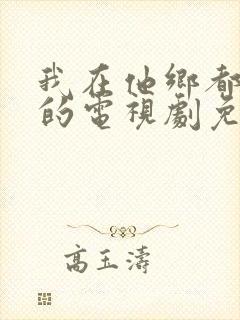 我在他鄉都
的電視劇免
高玉濤